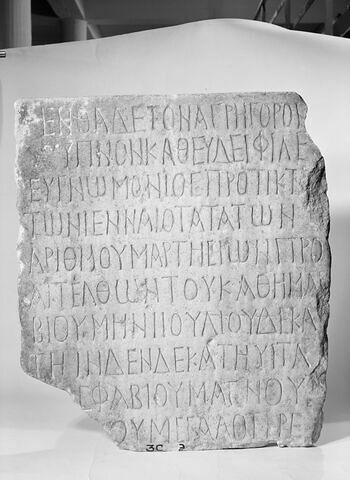 ΕΝΘΑΔΕΤΟΝΑΓΡΗΓΟΡΟΥ
ΥΠΝΟΝΚΑΘΕΥΔΕΙΦΙΛΕ
ΕΥΓΝΩΜΟΝΙΟϹΠΡΟΤΙΚΤ
ΤΩΝΓΕΝΝΑΙΟΤΑΤΑΤΩΝ
ΑΡΙΘΜΟΥΜΑΡΤΗϹΙΩΝΠΡΟ
ΑΠΕΛΘΩΝΤΟΥΚΑΘΗΜΑ
ΒΙΟΥΜΗΝΙΙΟΥΛΙΟΥΔΕΚΑ
ΤΗΙΝΔΕΝΔΕΚΑΤΗΥΠΑ
ϹΦΛΑΒΙΟΥΜΑΓΝΟΥ
ΟΥΜΕΓΑΛΟΠΡΕ